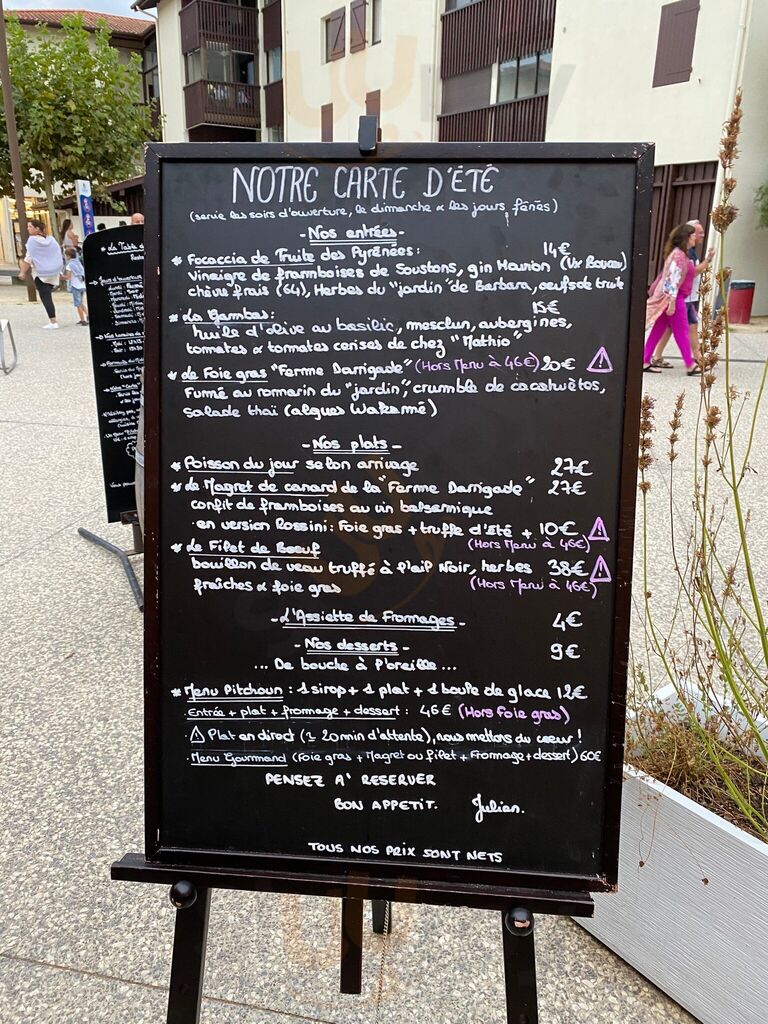 NOTRE CARTE D'ÉTÉ
(servie les soirs d'ouverture, le dimanche & les jours fériés)
- Nos entrées -
* Focaccia de Truite des Pyrénées : 14€
Vinaigre de framboises de Soustons, gin Mounon (Vx Boucau)
chèvre frais (64), Herbes du "jardin" de Barbara, oeufs de truite
* La Gambas : 15€
huile d'olive au basilic, mesclun, aubergines,
tomates & tomates cerises de chez "Mathio"
* Le Foie gras "Ferme Darrigade" (Hors Menu à 46€) 20€ ⚠
Fumé au romarin du "jardin", crumble de cacahuètes,
salade thaï (algues Wakamé)
- Nos plats -
* Poisson du jour selon arrivage 27€
* Le Magret de canard de la "Ferme Darrigade" 27€
confit de framboises au vin balsamique
en version Rossini : Foie gras + truffe d'été + 10€ ⚠
(Hors Menu à 46€)
* Le Filet de Boeuf
bouillon de veau truffé à l'ail Noir, herbes 38€ ⚠
fraîches & foie gras (Hors Menu à 46€)
- L'Assiette de Fromages - 4€
- Nos desserts - 9€
... De bouche à l'oreille ...
* Menu Pitchoun : 1 sirop + 1 plat + 1 boule de glace 12€
Entrée + plat + fromage + dessert : 46€ (Hors Foie gras)
⚠ Plat en direct (≃ 20min d'attente), nous mettons du coeur !
Menu Gourmand (Foie gras + Magret ou filet + Fromage + dessert) 60€
PENSEZ A' RESERVER
BON APPETIT. Julien.
TOUS NOS PRIX SONT NETS
La Table